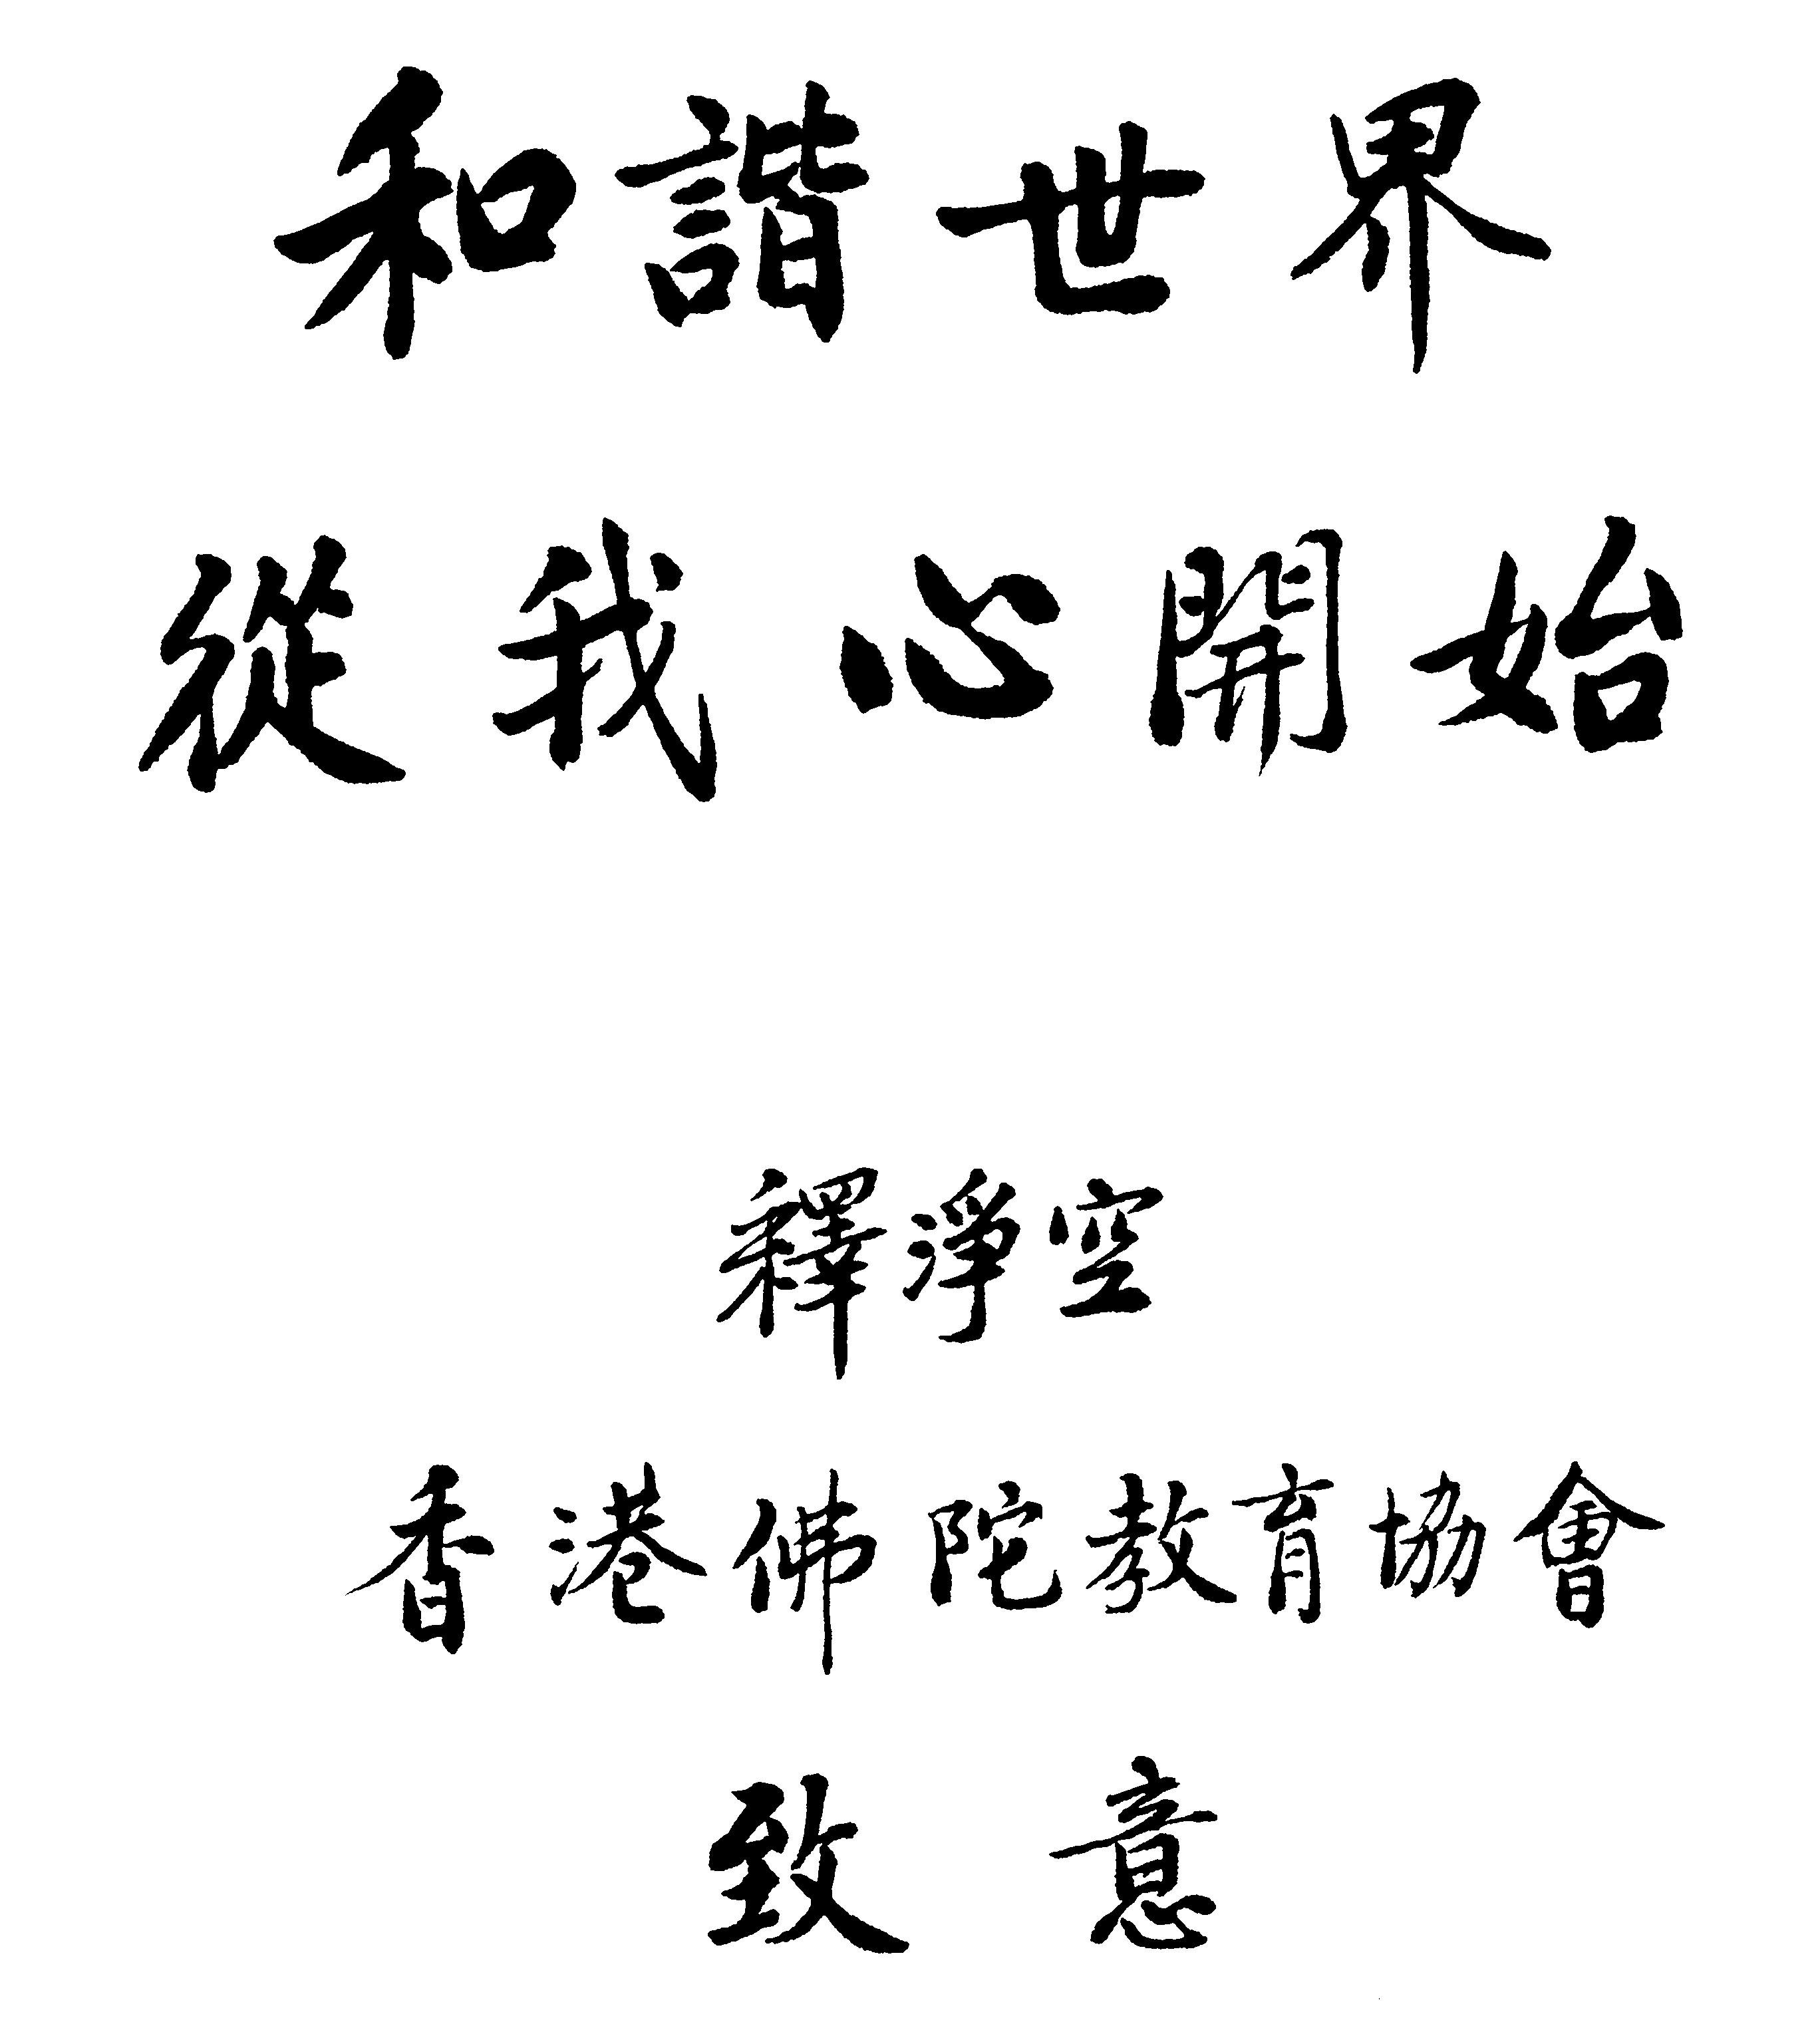 和諧世界
從我心開始
釋淨空
香港佛陀教育協會
致意